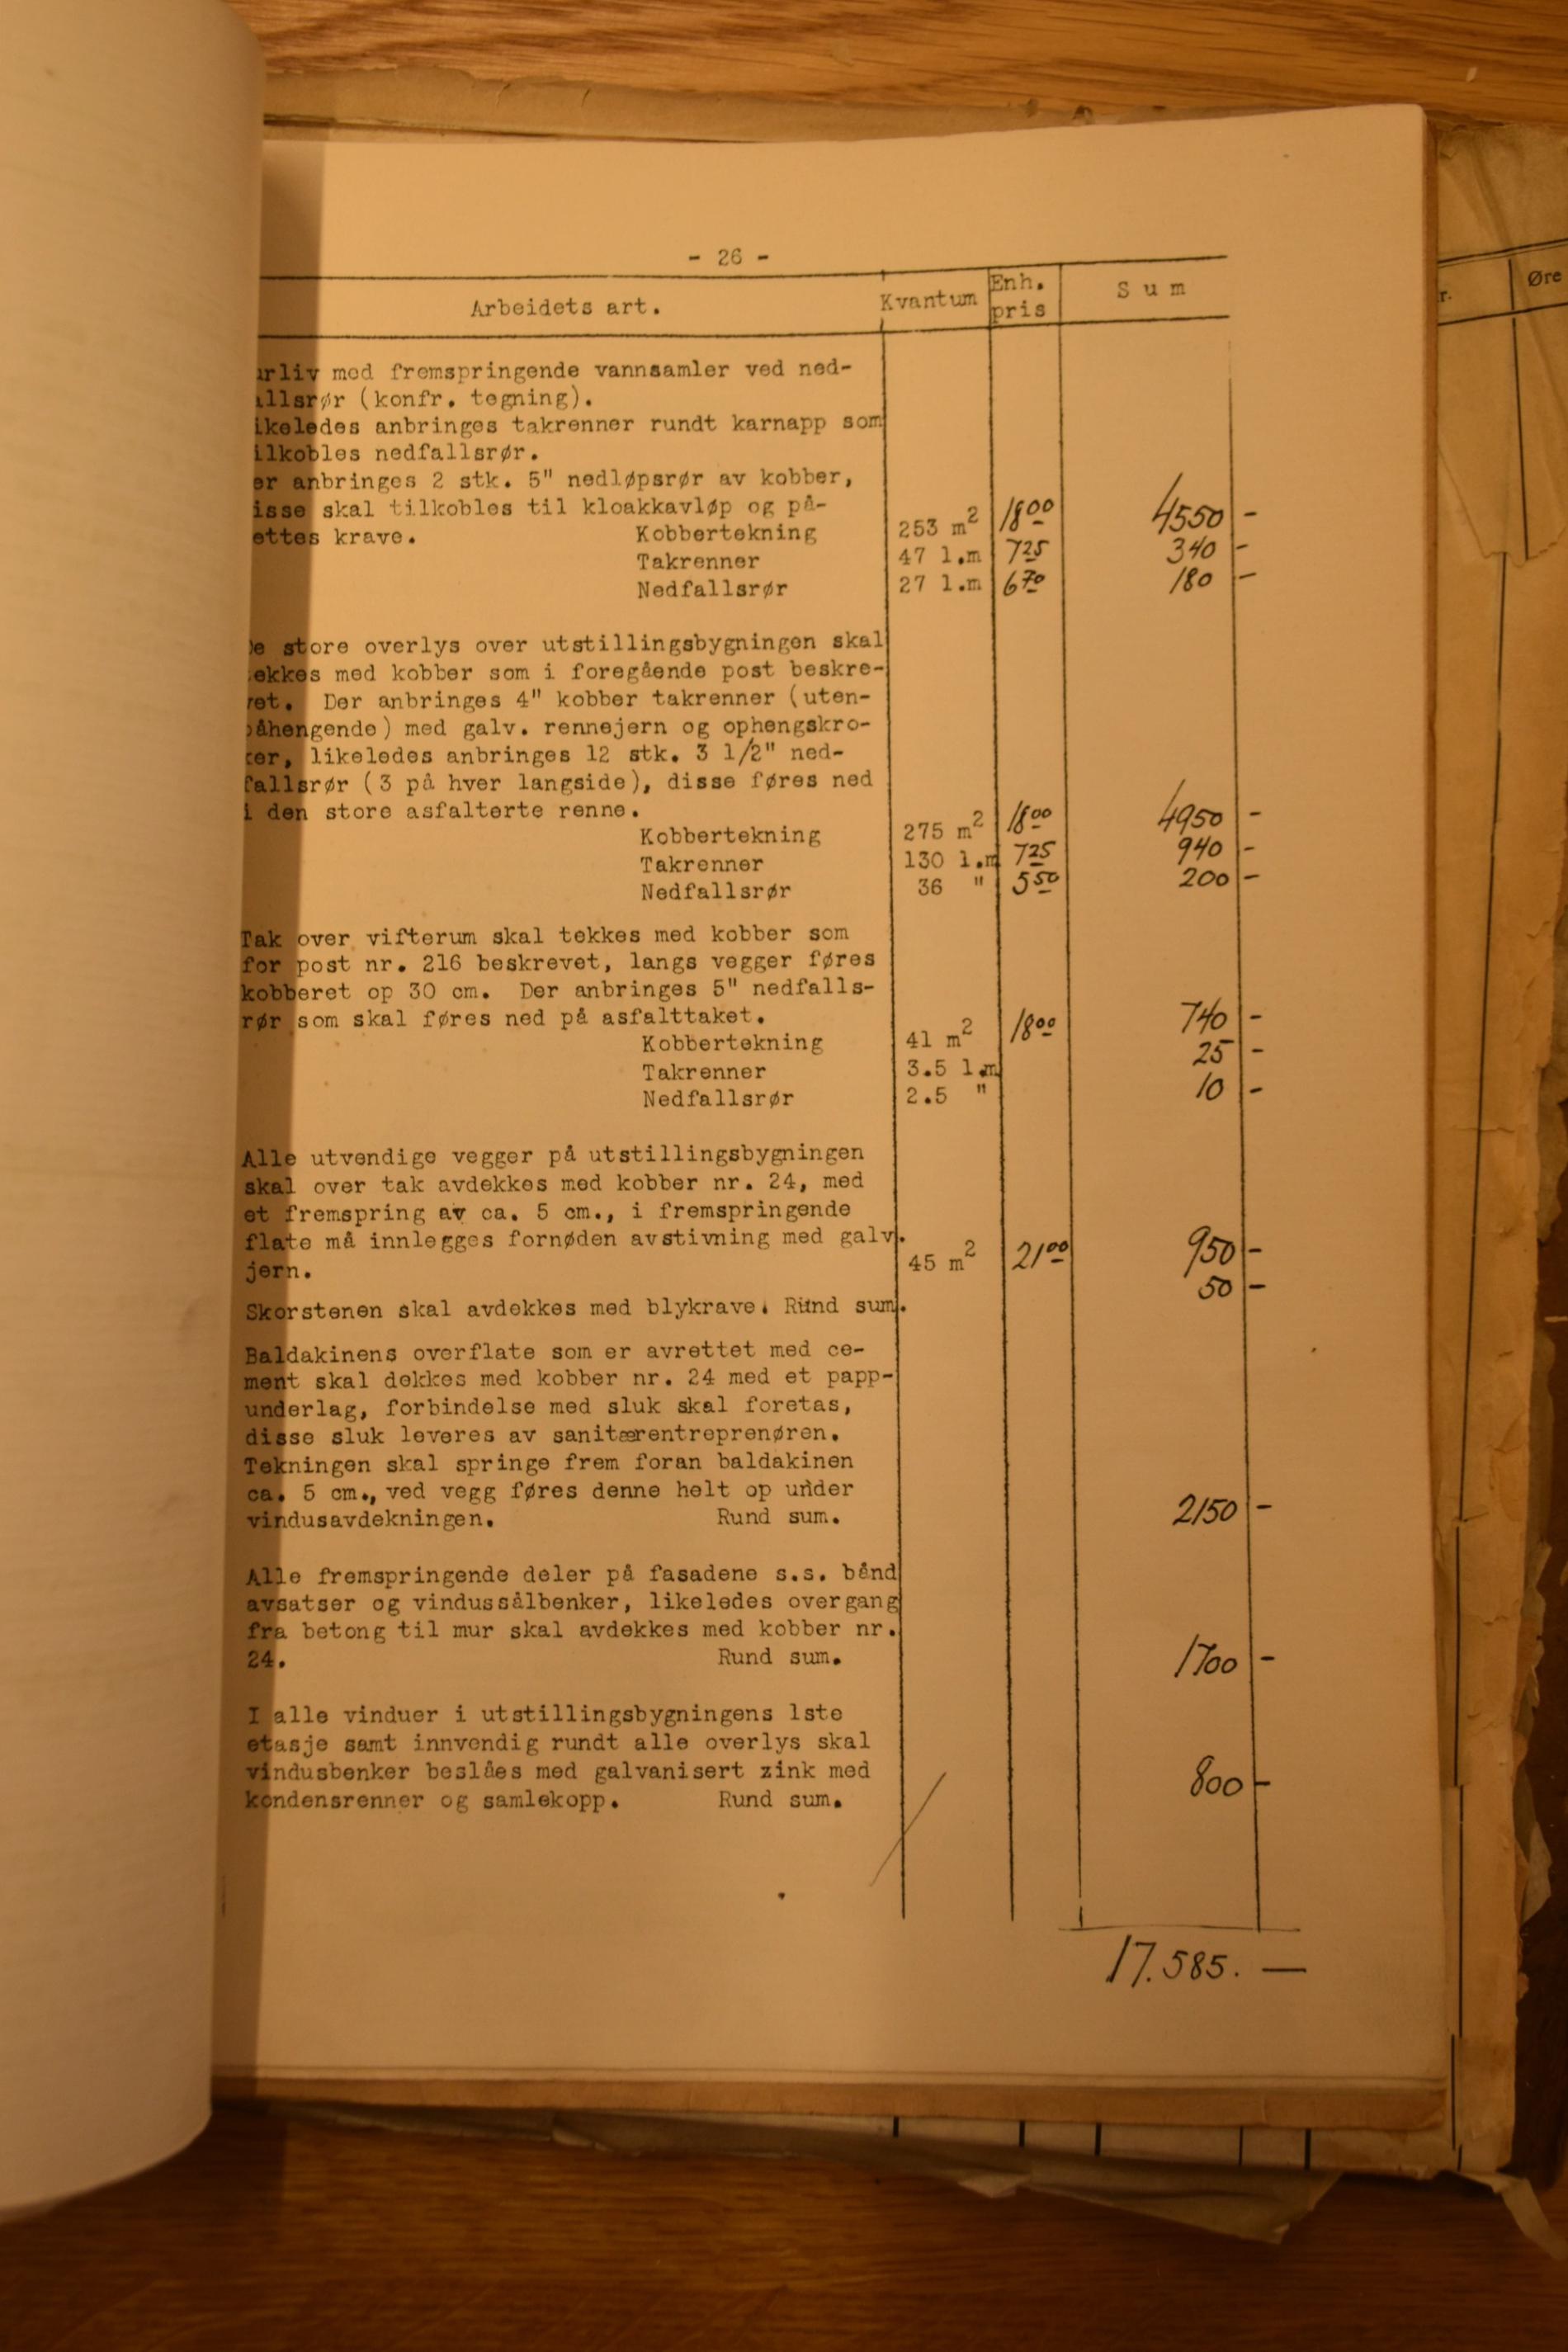 - 26 -
Arbeidets art. Kvantum Enh. pris Sum
urliv med fremspringende vannsamler ved ned-
allsrør (konfr. tegning).
ikeledes anbringes takrenner rundt karnapp som
ilkobles nedfallsrør.
er anbringes 2 stk. 5" nedløpsrør av kobber,
isse skal tilkobles til kloakkavløp og på-
ettes krave. Kobbertekning 253 m2 18.00 4550 -
Takrenner 47 l.m 7.25 340 -
Nedfallsrør 27 l.m 6.70 180 -
De store overlys over utstillingsbygningen skal
ekkes med kobber som i foregående post beskre-
vet. Der anbringes 4" kobber takrenner (uten-
påhengende) med galv. rennejern og ophengskro-
ker, likeledes anbringes 12 stk. 3 1/2" ned-
fallsrør (3 på hver langside), disse føres ned
i den store asfalterte renne.
Kobbertekning 275 m2 18.00 4950 -
Takrenner 130 l.m 7.25 940 -
Nedfallsrør 36 " 5.50 200 -
Tak over vifterum skal tekkes med kobber som
for post nr. 216 beskrevet, langs vegger føres
kobberet op 30 cm. Der anbringes 5" nedfalls-
rør som skal føres ned på asfalttaket.
Kobbertekning 41 m2 18.00 740 -
Takrenner 3.5 l.m 25 -
Nedfallsrør 2.5 " 10 -
Alle utvendige vegger på utstillingsbygningen
skal over tak avdekkes med kobber nr. 24, med
et fremspring av ca. 5 cm., i fremspringende
flate må innlegges fornøden avstivning med galv.
jern. 45 m2 21.00 950 -
Skorstenen skal avdekkes med blykrave. Rund sum. 50 -
Baldakinens overflate som er avrettet med ce-
ment skal dekkes med kobber nr. 24 med et papp-
underlag, forbindelse med sluk skal foretas,
disse sluk leveres av sanitærentreprenøren.
Tekningen skal springe frem foran baldakinen
ca. 5 cm., ved vegg føres denne helt op under
vindusavdekningen. Rund sum. 2150 -
Alle fremspringende deler på fasadene s.s. bånd
avsatser og vindussålbenker, likeledes overgang
fra betong til mur skal avdekkes med kobber nr.
24. Rund sum. 1700 -
I alle vinduer i utstillingsbygningens 1ste
etasje samt innvendig rundt alle overlys skal
vindusbenker beslåes med galvanisert zink med
kondensrenner og samlekopp. Rund sum. 800 -
17.585. —
r. Øre